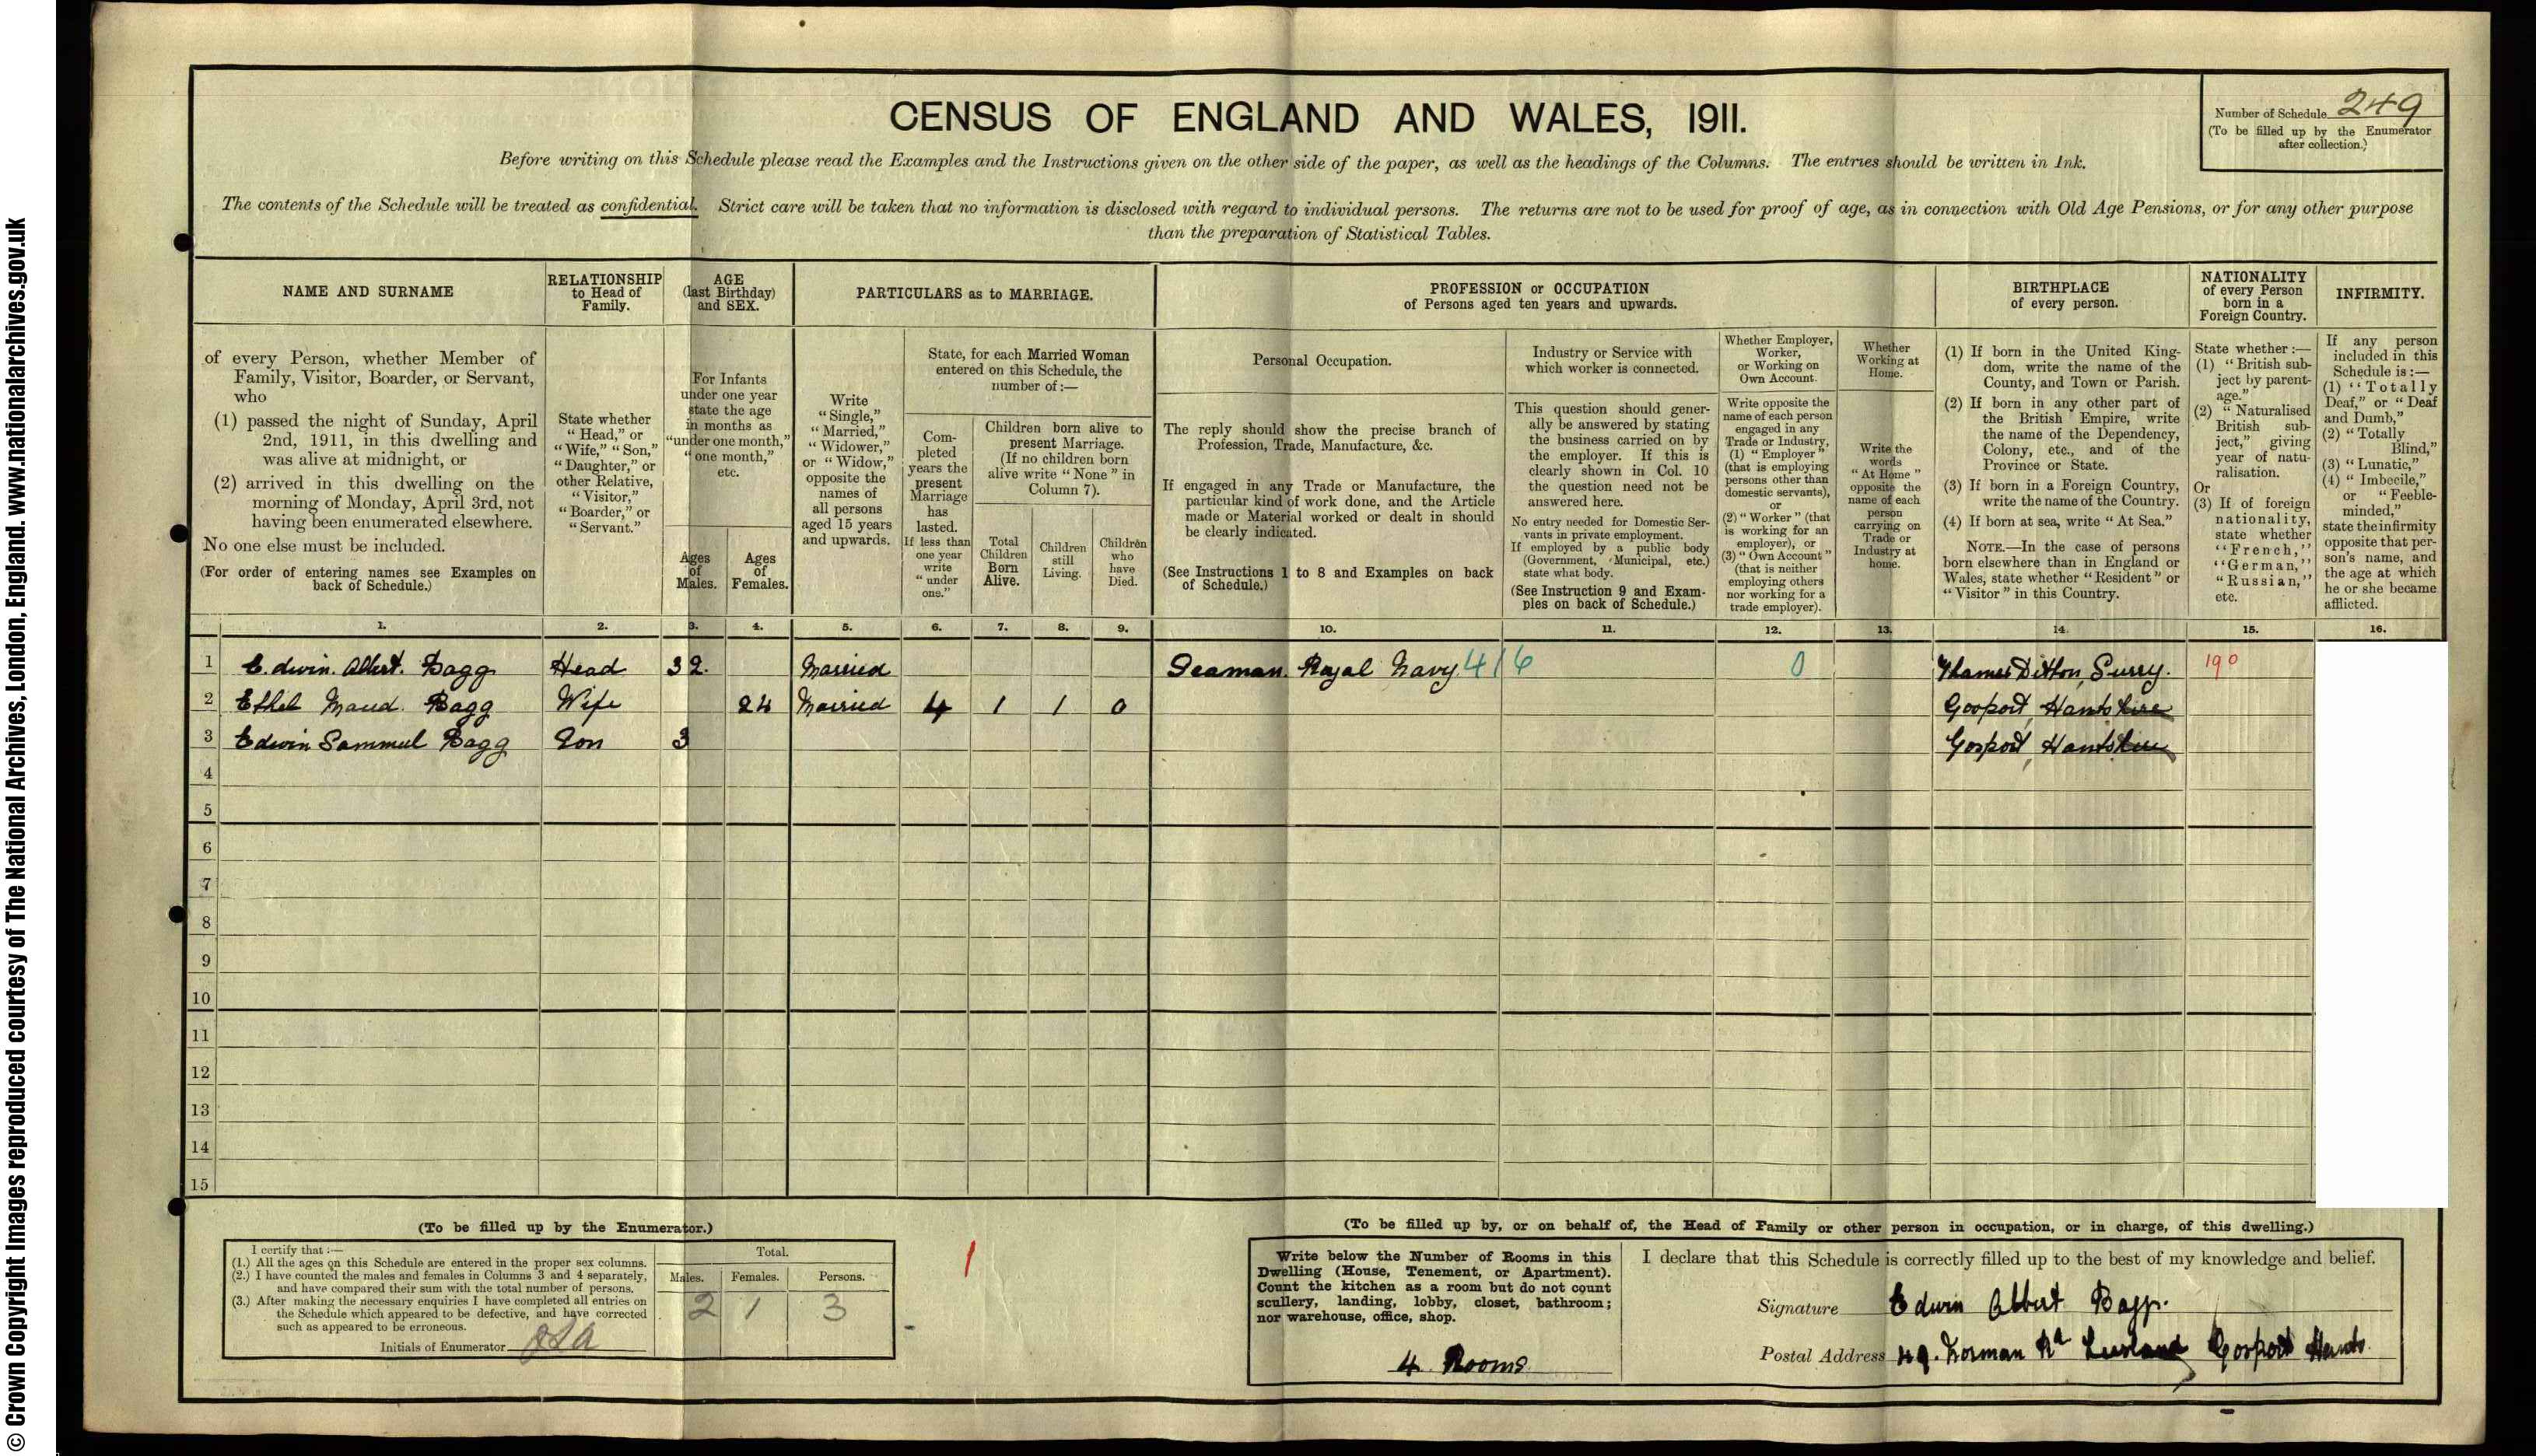 © Crown Copyright Images reproduced courtesy of The National Archives, London, England. www.nationalarchives.gov.uk
CENSUS OF ENGLAND AND WALES, 1911.
Number of Schedule 249
(To be filled up by the Enumerator
after collection.)
Before writing on this Schedule please read the Examples and the Instructions given on the other side of the paper, as well as the headings of the Columns. The entries should be written in Ink.
The contents of the Schedule will be treated as confidential. Strict care will be taken that no information is disclosed with regard to individual persons. The returns are not to be used for proof of age, as in connection with Old Age Pensions, or for any other purpose
than the preparation of Statistical Tables.
NAME AND SURNAME
of every Person, whether Member of
Family, Visitor, Boarder, or Servant,
who
(1) passed the night of Sunday, April
2nd, 1911, in this dwelling and
was alive at midnight, or
(2) arrived in this dwelling on the
morning of Monday, April 3rd, not
having been enumerated elsewhere.
No one else must be included.
(For order of entering names see Examples on
back of Schedule.)
RELATIONSHIP
to Head of
Family.
State whether
“Head,” or
“Wife,” “Son,”
“Daughter,” or
other Relative,
“Visitor,”
“Boarder,” or
“Servant.”
AGE
(last Birthday)
and SEX.
For Infants
under one year
state the age
in months as
“under one month,”
“one month,”
etc.
Ages
of
Males.
Ages
of
Females.
PARTICULARS as to MARRIAGE.
Write
“Single,”
“Married,”
“Widower,”
or “Widow,”
opposite the
names of
all persons
aged 15 years
and upwards.
State, for each Married Woman
entered on this Schedule, the
number of:—
Com-
pleted
years the
present
Marriage
has
lasted.
If less than
one year
write
“under
one.”
Children born alive to
present Marriage.
(If no children born
alive write “None” in
Column 7).
Total
Children
Born
Alive.
Children
still
Living.
Children
who
have
Died.
PROFESSION or OCCUPATION
of Persons aged ten years and upwards.
Personal Occupation.
The reply should show the precise branch of
Profession, Trade, Manufacture, &c.
If engaged in any Trade or Manufacture, the
particular kind of work done, and the Article
made or Material worked or dealt in should
be clearly indicated.
(See Instructions 1 to 8 and Examples on back
of Schedule.)
Industry or Service with
which worker is connected.
This question should gener-
ally be answered by stating
the business carried on by
the employer. If this is
clearly shown in Col. 10
the question need not be
answered here.
No entry needed for Domestic Ser-
vants in private employment.
If employed by a public body
(Government, Municipal, etc.)
state what body.
(See Instruction 9 and Exam-
ples on back of Schedule.)
Whether Employer,
Worker,
or Working on
Own Account.
Write opposite the
name of each person
engaged in any
Trade or Industry,
(1) “Employer”
(that is employing
persons other than
domestic servants),
or
(2) “Worker” (that
is working for an
employer), or
(3) “Own Account”
(that is neither
employing others
nor working for a
trade employer).
Whether
Working at
Home.
Write the
words
“At Home”
opposite the
name of each
person
carrying on
Trade or
Industry at
home.
BIRTHPLACE
of every person.
(1) If born in the United King-
dom, write the name of the
County, and Town or Parish.
(2) If born in any other part of
the British Empire, write
the name of the Dependency,
Colony, etc., and of the
Province or State.
(3) If born in a Foreign Country,
write the name of the Country.
(4) If born at sea, write “At Sea.”
NOTE.—In the case of persons
born elsewhere than in England or
Wales, state whether “Resident” or
“Visitor” in this Country.
NATIONALITY
of every Person
born in a
Foreign Country.
State whether :—
(1) “British sub-
ject by parent-
age.”
(2) “Naturalised
British sub-
ject,” giving
year of natu-
ralisation.
Or
(3) If of foreign
nationality,
state whether
“French,”
“German,”
“Russian,”
etc.
INFIRMITY.
If any person
included in this
Schedule is :—
(1) “Totally
Deaf,” or “Deaf
and Dumb,”
(2) “Totally
Blind,”
(3) “Lunatic,”
(4) “Imbecile,”
or “Feeble-
minded,”
state the infirmity
opposite that per-
son's name, and
the age at which
he or she became
afflicted.
1. 2. 3. 4. 5. 6. 7. 8. 9. 10. 11. 12. 13. 14. 15. 16.
1 Edwin. Albert. Bagg Head 32. Married Seaman. Royal Navy. 416 0 Thames Ditton, Surry. 190
2 Ethel Maud. Bagg Wife 24 Married 4 1 1 0 Gosport, Hantshire
3 Edwin Sammul Bagg Son 3 Gosport, Hantshire
4
5
6
7
8
9
10
11
12
13
14
15
(To be filled up by the Enumerator.)
I certify that :—
(1.) All the ages on this Schedule are entered in the proper sex columns.
(2.) I have counted the males and females in Columns 3 and 4 separately,
and have compared their sum with the total number of persons.
(3.) After making the necessary enquiries I have completed all entries on
the Schedule which appeared to be defective, and have corrected
such as appeared to be erroneous.
Initials of Enumerator
Total.
Males. Females. Persons.
2 1 3
1
(To be filled up by, or on behalf of, the Head of Family or other person in occupation, or in charge, of this dwelling.)
Write below the Number of Rooms in this
Dwelling (House, Tenement, or Apartment).
Count the kitchen as a room but do not count
scullery, landing, lobby, closet, bathroom;
nor warehouse, office, shop.
4 Rooms
I declare that this Schedule is correctly filled up to the best of my knowledge and belief.
Signature Edwin Albert Bagg.
Postal Address 49. Norman Rd Gosport Hants.